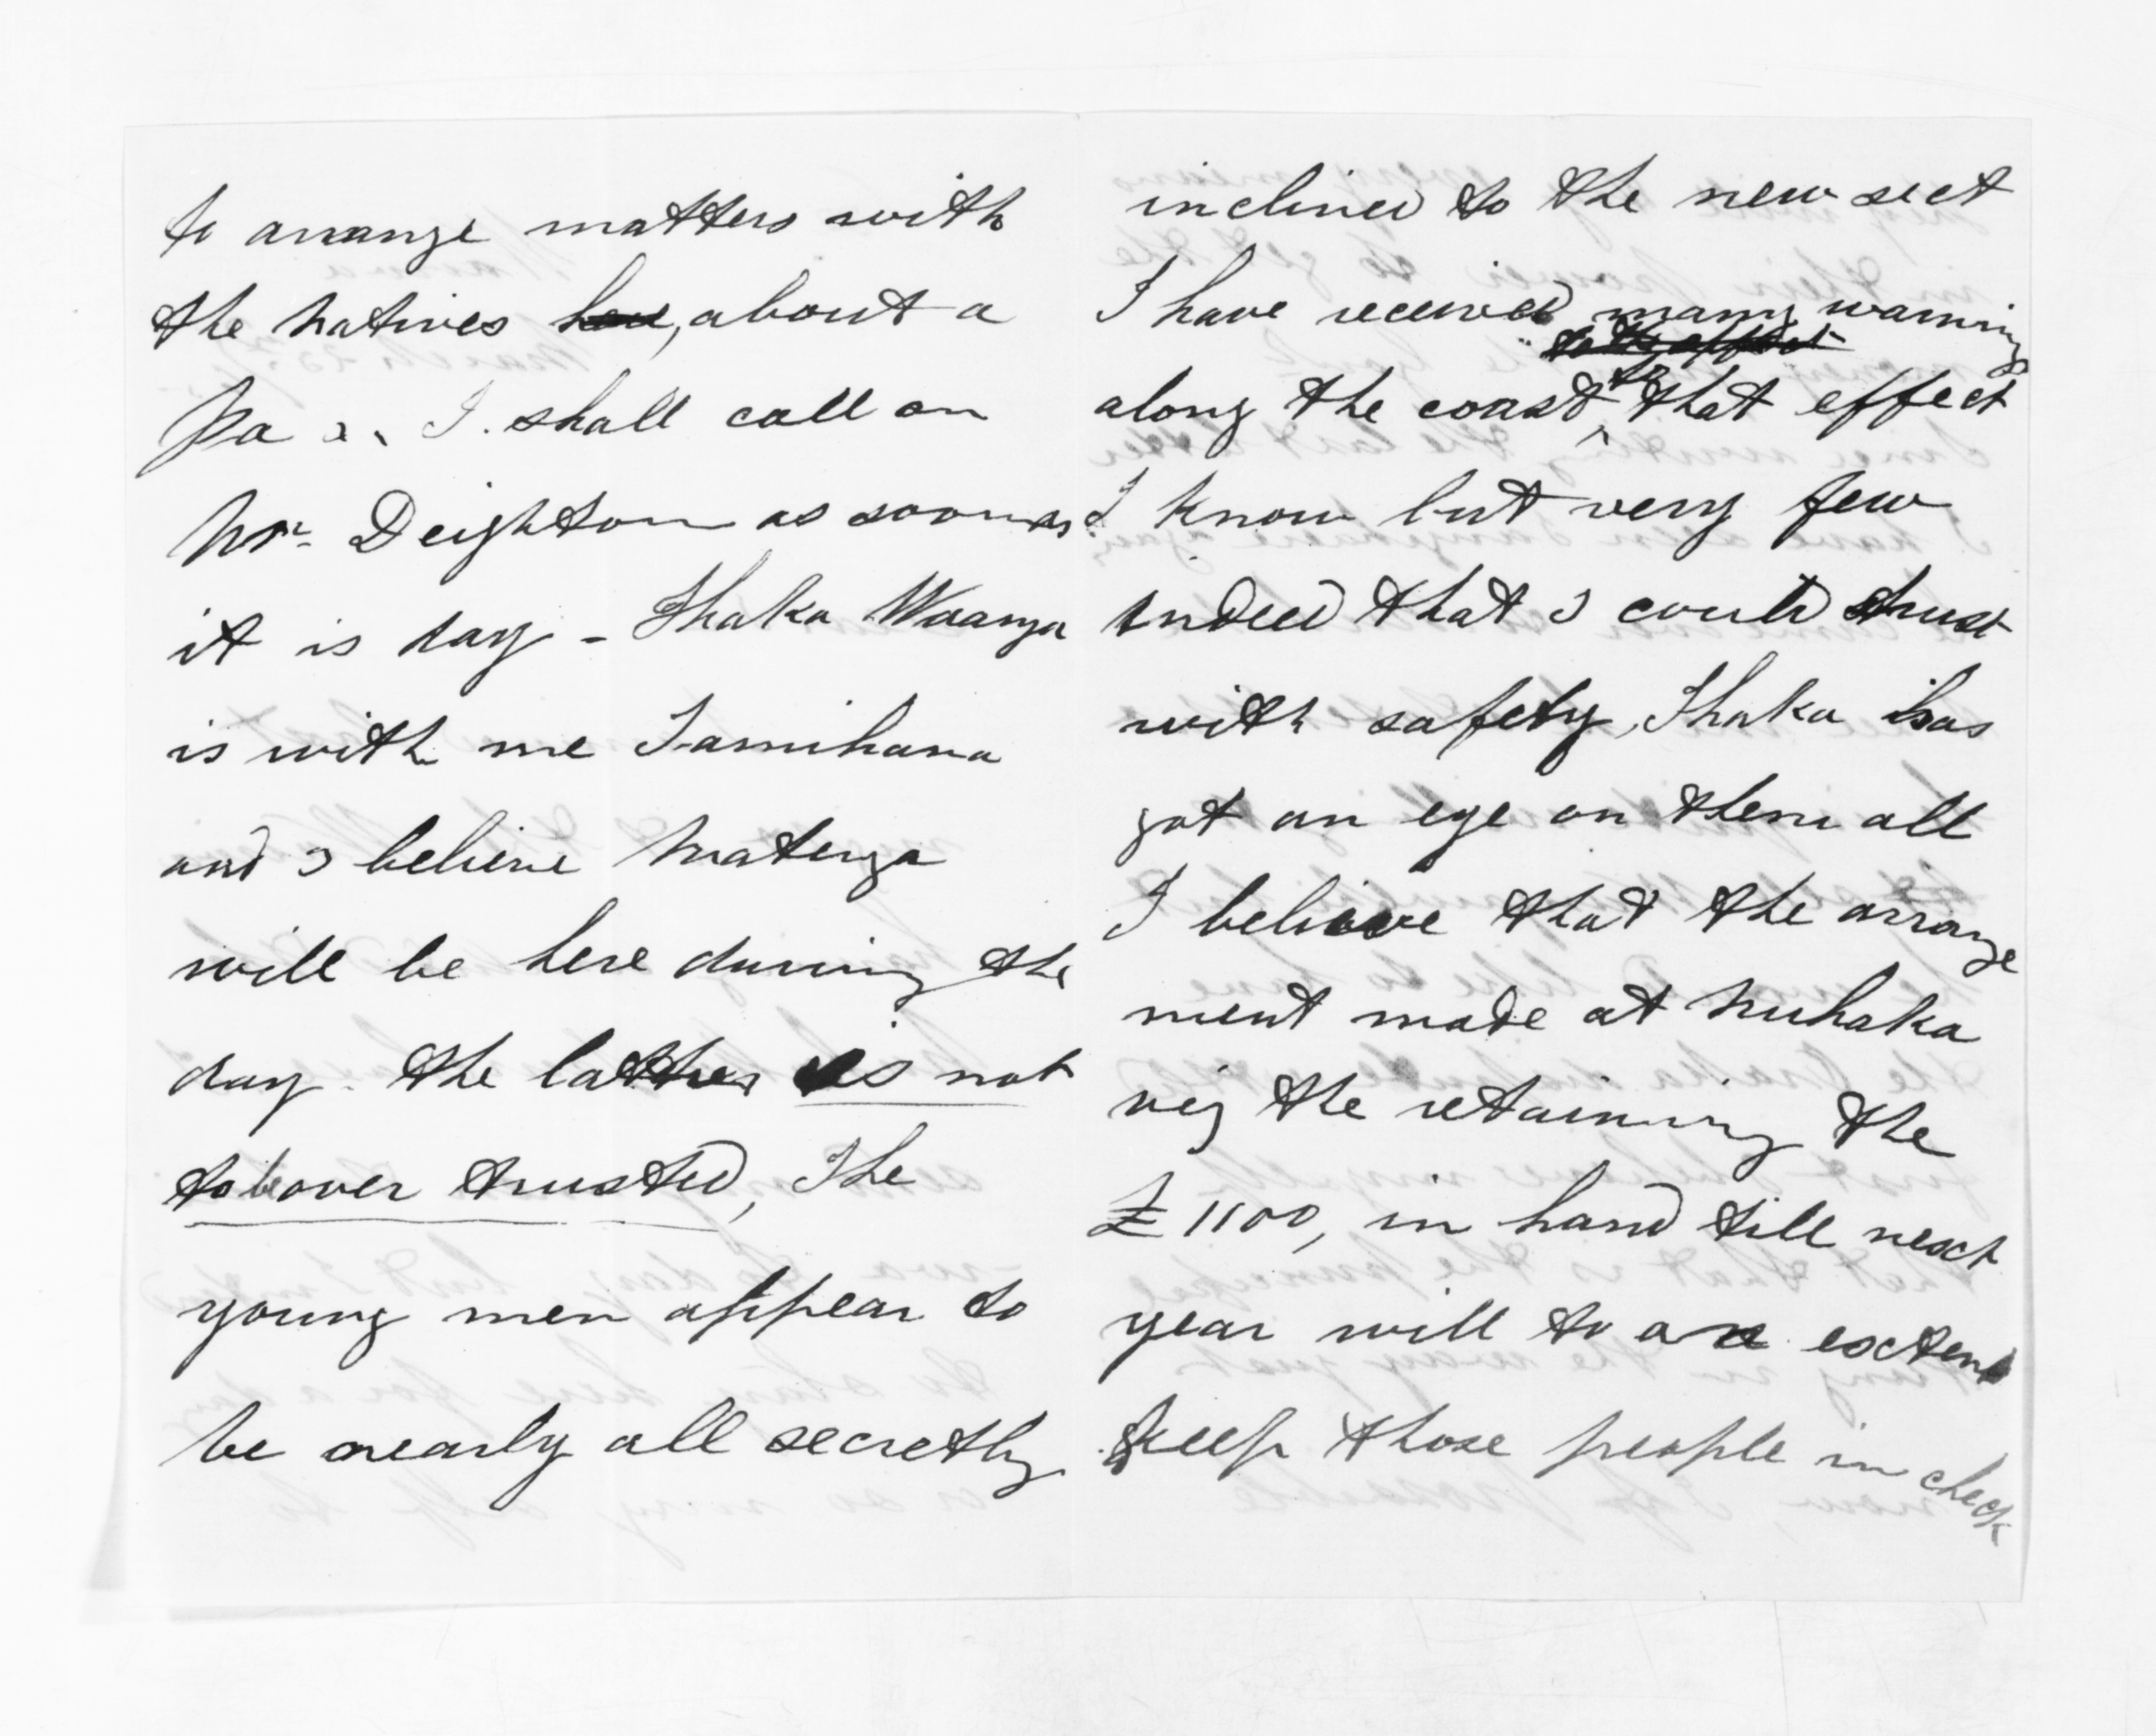 to arrange matters with
the natives here, about a
Pa &c, I shall call on
Mr. Deighton as soon as
it is day - Ihaka Waanga
is with me Tamihana
and I believe Matenga
will be here during the
day. the latter is not
to be over trusted, The
young men appear to
be nearly all secretly
inclined to the new sect
I have received many warnings
to this effect
along the coast, to that effect
I know but very few
indeed that I could trust
with safety, Ihaka has
got an eye on them all
I believe that the arrange
ment made at Nuhaka
viz the retaining the
£1100, in hand till next
year will to an extent
keep those people in check